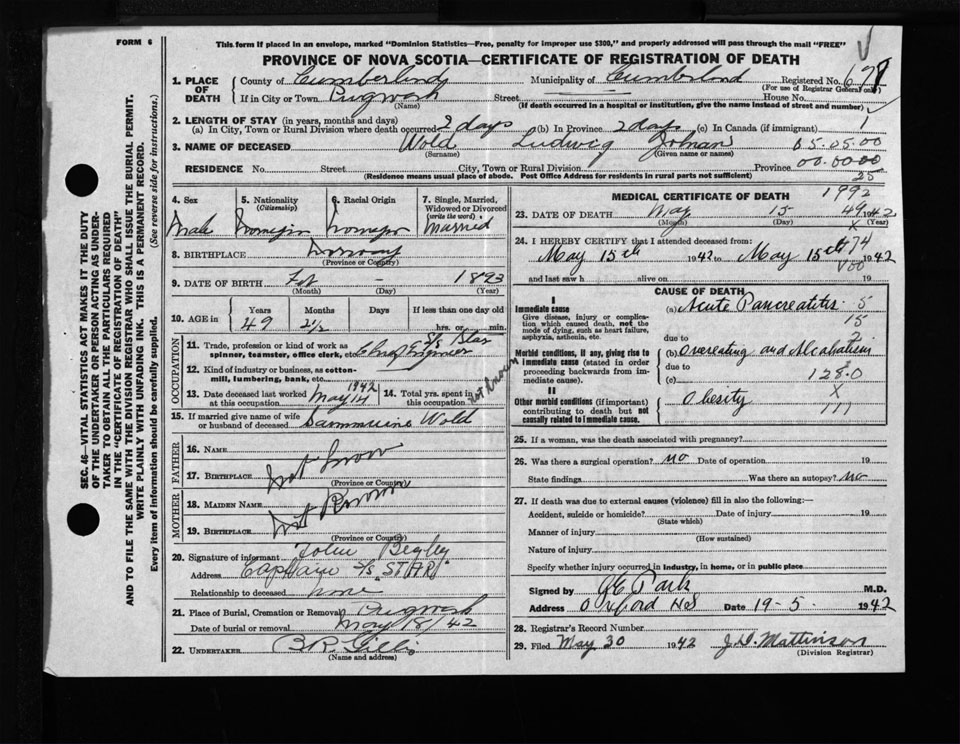 FORM 6
This form if placed in an envelope, marked "Dominion Statistics—Free, penalty for improper use $300," and properly addressed will pass through the mail "FREE"
PROVINCE OF NOVA SCOTIA—CERTIFICATE OF REGISTRATION OF DEATH
1. PLACE OF DEATH
County of Cumberland Municipality of Cumberland Registered No.
(For use of Registrar General only)
If in City or Town Pugwash Street House No.
(Name) (If death occurred in a hospital or institution, give the name instead of street and number)
2. LENGTH OF STAY (in years, months and days)
(a) In City, Town or Rural Division where death occurred 2 days (b) In Province 2 days (c) In Canada (if immigrant) 1
3. NAME OF DECEASED Wold Ludwig Johan 05.05.00
(Surname) (Given name or names)
RESIDENCE No. Street City, Town or Rural Division Province 00.00.00
(Residence means usual place of abode. Post Office Address for residents in rural parts not sufficient) 25
4. Sex
Male
5. Nationality
(Citizenship)
Norwegian
6. Racial Origin
Norwegian
7. Single, Married, Widowed or Divorced
(write the word)
Married
8. BIRTHPLACE Norway
(Province or Country)
9. DATE OF BIRTH Feb 1893
(Month) (Day) (Year)
10. AGE
Years Months Days If less than one day old
49 2½ hrs. or min.
OCCUPATION
11. Trade, profession or kind of work as spinner, teamster, office clerk, etc. Chief Engineer S/S Star
12. Kind of industry or business, as cotton-mill, lumbering, bank, etc.
13. Date deceased last worked at this occupation May 14 1942
14. Total yrs. spent in this occupation not known
15. If married give name of wife or husband of deceased Wold
FATHER
16. NAME
17. BIRTHPLACE not know
(Province or Country)
MOTHER
18. MAIDEN NAME
19. BIRTHPLACE not known
(Province or Country)
20. Signature of informant John Begley
Address Captain S/S "STAR"
Relationship to deceased none
21. Place of Burial, Cremation or Removal Pugwash
Date of burial or removal May 18/42
22. UNDERTAKER
(Name and address)
MEDICAL CERTIFICATE OF DEATH 1992
23. DATE OF DEATH May 15 1942
(Month) (Day) (Year)
24. I HEREBY CERTIFY that I attended deceased from:
May 15th 1942 to May 15th 1942
and last saw h alive on 19
CAUSE OF DEATH
I
Immediate cause
Give disease, injury or complication which caused death, not the mode of dying, such as heart failure, asphyxia, asthenia, etc.
(a) Acute Pancreatitis 5
15
due to
Morbid conditions, if any, giving rise to immediate cause (stated in order proceeding backwards from immediate cause).
(b) Overeating and Alcoholism
due to
(c) 128.0
II
Other morbid conditions (if important) contributing to death but not causally related to immediate cause.
Obesity X
111
25. If a woman, was the death associated with pregnancy?
26. Was there a surgical operation? no Date of operation 19
State findings Was there an autopsy? no
27. If death was due to external causes (violence) fill in also the following:—
Accident, suicide or homicide? Date of injury 19
(State which)
Manner of injury
(How sustained)
Nature of injury
Specify whether injury occurred in industry, in home, or in public place
Signed by Park M.D.
Address Oxford NS Date 19-5. 1942
28. Registrar's Record Number
29. Filed May 30 1942 Mattinson
(Division Registrar)
SEC. 46—VITAL STATISTICS ACT MAKES IT THE DUTY OF THE UNDERTAKER OR PERSON ACTING AS UNDERTAKER TO OBTAIN ALL THE PARTICULARS REQUIRED IN THE "CERTIFICATE OF REGISTRATION OF DEATH"
AND TO FILE THE SAME WITH THE DIVISION REGISTRAR WHO SHALL ISSUE THE BURIAL PERMIT.
WRITE PLAINLY WITH UNFADING INK. THIS IS A PERMANENT RECORD.
Every item of information should be carefully supplied. (See reverse side for instructions.)